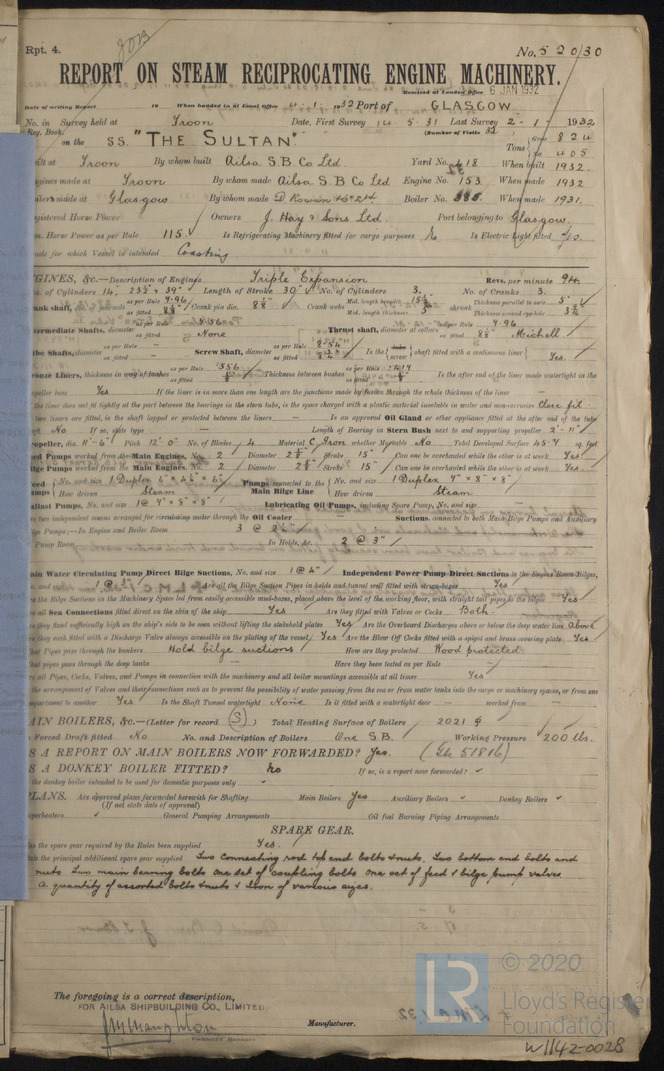 Rpt. 4.
No. 52030
REPORT ON STEAM RECIPROCATING ENGINE MACHINERY.
Received at London Office 6 JAN 1932
Date of writing Report 19 When handed in at Local Office 4. 1. 1932 Port of GLASGOW
No. in Survey held at Troon Date, First Survey 14. 5. 31 Last Survey 2. 1. 1932
Reg. Book. (Number of Visits 32)
on the SS. "THE SULTAN" Tons Gross 824
Net 405
Built at Troon By whom built Ailsa S.B Co Ltd. Yard No. 418 When built 1932.
Engines made at Troon By whom made Ailsa S.B Co Ltd Engine No. 153 When made 1932
Boilers made at Glasgow By whom made D. Rowan & Co Ltd Boiler No. When made 1931.
Registered Horse Power Owners J. Hay & Sons Ltd. Port belonging to Glasgow.
Nom. Horse Power as per Rule 115. Is Refrigerating Machinery fitted for cargo purposes Is Electric Light fitted Yes.
Trade for which Vessel is intended Coasting
ENGINES, &c.—Description of Engines Triple Expansion Revs. per minute 94.
Dia. of Cylinders 14, 23½ × 39" Length of Stroke 30" No. of Cylinders 3. No. of Cranks 3.
Crank shaft, dia. of journals as per Rule 7.96 as fitted 8¼" Crank pin dia. 8¼" Crank webs Mid. length breadth Mid. length thickness 5" shrunk Thickness parallel to axis 5" Thickness around eyehole
Intermediate Shafts, diameter as per Rule as fitted None Thrust shaft, diameter at collars as per Rule 7.96 as fitted 8¼" Michell
Tube Shafts, diameter as per Rule as fitted Screw Shaft, diameter as per Rule as fitted Is the screw shaft fitted with a continuous liner Yes.
Bronze Liners, thickness in way of bushes as per Rule .556 as fitted Thickness between bushes as per Rule as fitted Is the after end of the liner made watertight in the
propeller boss Yes If the liner is in more than one length are the junctions made by fusion through the whole thickness of the liner —
If the liner does not fit tightly at the part between the bearings in the stern tube, is the space charged with a plastic material insoluble in water and non-corrosive Close fit
If two liners are fitted, is the shaft lapped or protected between the liners Is an approved Oil Gland or other appliance fitted at the after end of the tube
shaft No If so, state type — Length of Bearing in Stern Bush next to and supporting propeller 2'-11"
Propeller, dia. 11'-6" Pitch 12'-0" No. of Blades 4 Material C. Iron whether Moveable No Total Developed Surface 45.7 sq. feet
Feed Pumps worked from the Main Engines, No. 2 Diameter Stroke 15" Can one be overhauled while the other is at work Yes.
Bilge Pumps worked from the Main Engines, No. 2 Diameter Stroke 15" Can one be overhauled while the other is at work Yes.
Feed Pumps No. and size 1 Duplex 6" × 4½" × 6" How driven Steam Pumps connected to the Main Bilge Line No. and size 1 Duplex 7" × 8" × 8" How driven Steam
Ballast Pumps, No. and size 1 @ 7" × 8" × 8" Lubricating Oil Pumps, including Spare Pump, No. and size
Are two independent means arranged for circulating water through the Oil Cooler Suctions, connected to both Main Bilge Pumps and Auxiliary
Bilge Pumps;—In Engine and Boiler Room 3 @ 2½"
In Pump Room In Holds, &c. 2 @ 3"
Main Water Circulating Pump Direct Bilge Suctions, No. and size 1 @ 4" Independent Power Pump Direct Suctions to the Engine Room Bilges,
Are all the Bilge Suction Pipes in holds and tunnel well fitted with strum-boxes Yes
Are the Bilge Suctions in the Machinery Space led from easily accessible mud-boxes, placed above the level of the working floor, with straight tail pipes to the bilges Yes
Are all Sea Connections fitted direct on the skin of the ship Yes Are they fitted with Valves or Cocks Both.
Are they fixed sufficiently high on the ship's side to be seen without lifting the stokehold plates Yes Are the Overboard Discharges above or below the deep water line Above
Are they each fitted with a Discharge Valve always accessible on the plating of the vessel Yes Are the Blow Off Cocks fitted with a spigot and brass covering plate Yes
What Pipes pass through the bunkers Hold bilge suctions How are they protected Wood protected.
What pipes pass through the deep tanks — Have they been tested as per Rule —
Are all Pipes, Cocks, Valves, and Pumps in connection with the machinery and all boiler mountings accessible at all times Yes
Is the arrangement of Valves and their connections such as to prevent the possibility of water passing from the sea or from water tanks into the cargo or machinery spaces, or from one
compartment to another Yes Is the Shaft Tunnel watertight None Is it fitted with a watertight door — worked from —
MAIN BOILERS, &c.—(Letter for record (S)) Total Heating Surface of Boilers 2021 ϕ
Is Forced Draft fitted No No. and Description of Boilers One S.B. Working Pressure 200 lbs.
IS A REPORT ON MAIN BOILERS NOW FORWARDED? Yes. (Gls 51816)
IS A DONKEY BOILER FITTED? No If so, is a report now forwarded?
Is the donkey boiler intended to be used for domestic purposes only
PLANS. Are approved plans forwarded herewith for Shafting Main Boilers Yes Auxiliary Boilers Donkey Boilers
(If not state date of approval)
Superheaters General Pumping Arrangements Oil fuel Burning Piping Arrangements
SPARE GEAR.
Has the spare gear required by the Rules been supplied Yes.
State the principal additional spare gear supplied Two connecting rod top end bolts & nuts, two bottom end bolts and
nuts two main bearing bolts one set of coupling bolts one set of feed & bilge pump valves
a quantity of assorted bolts & nuts & iron of various sizes.
The foregoing is a correct description,
FOR AILSA SHIPBUILDING CO., LIMITED
Manufacturer.
LR
© 2020
Lloyd's Register
Foundation
W1142-0028